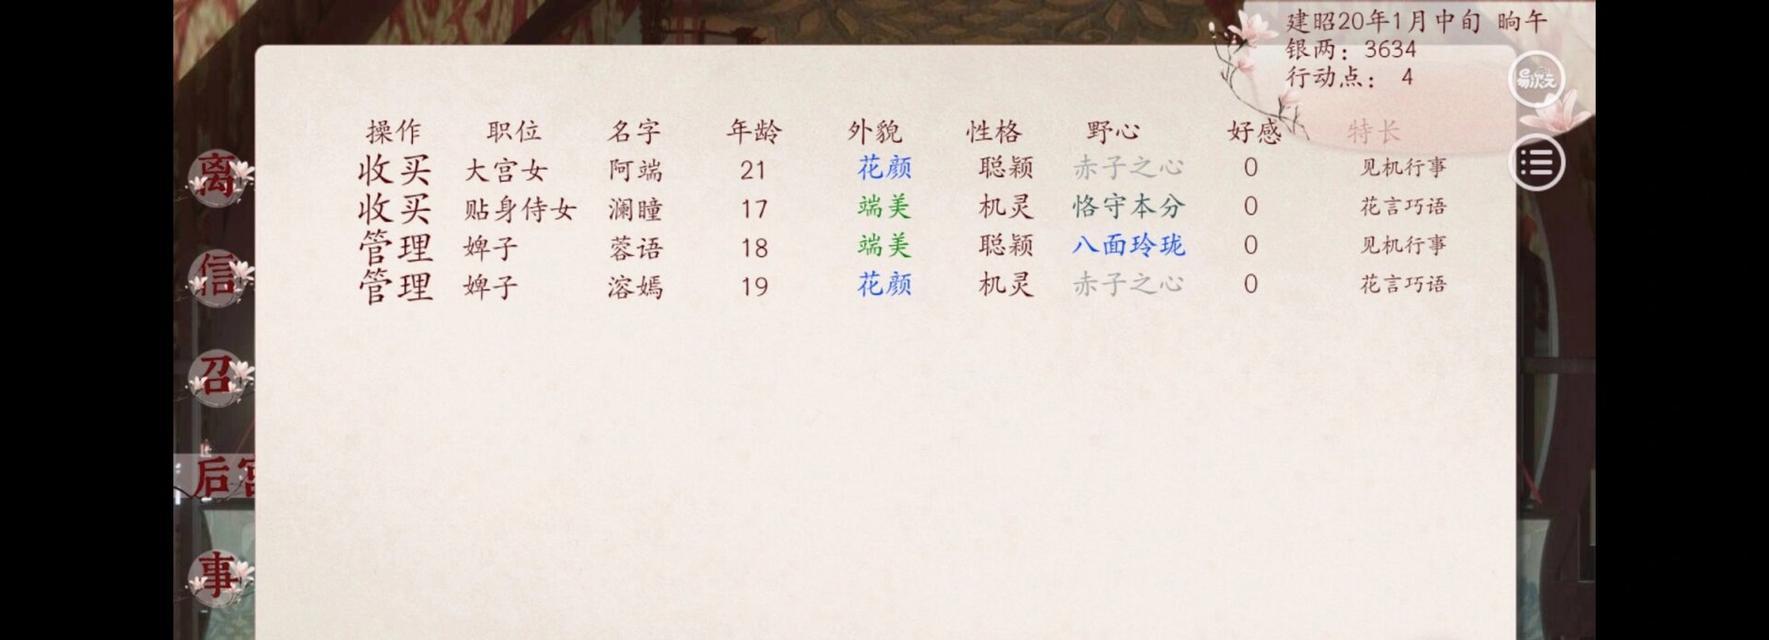 建昭20年1月中旬 晌午
银两：3634
行动点： 4
易次元
操作 职位 名字 年龄 外貌 性格 野心 好感 特长
收买 大宫女 阿端 21 花颜 聪颖 赤子之心 0 见机行事
收买 贴身侍女 澜瞳 17 端美 机灵 恪守本分 0 花言巧语
管理 婢子 蓉语 18 端美 聪颖 八面玲珑 0 见机行事
管理 婢子 溶嫣 19 花颜 机灵 赤子之心 0 花言巧语
离
信
召
后宫
事